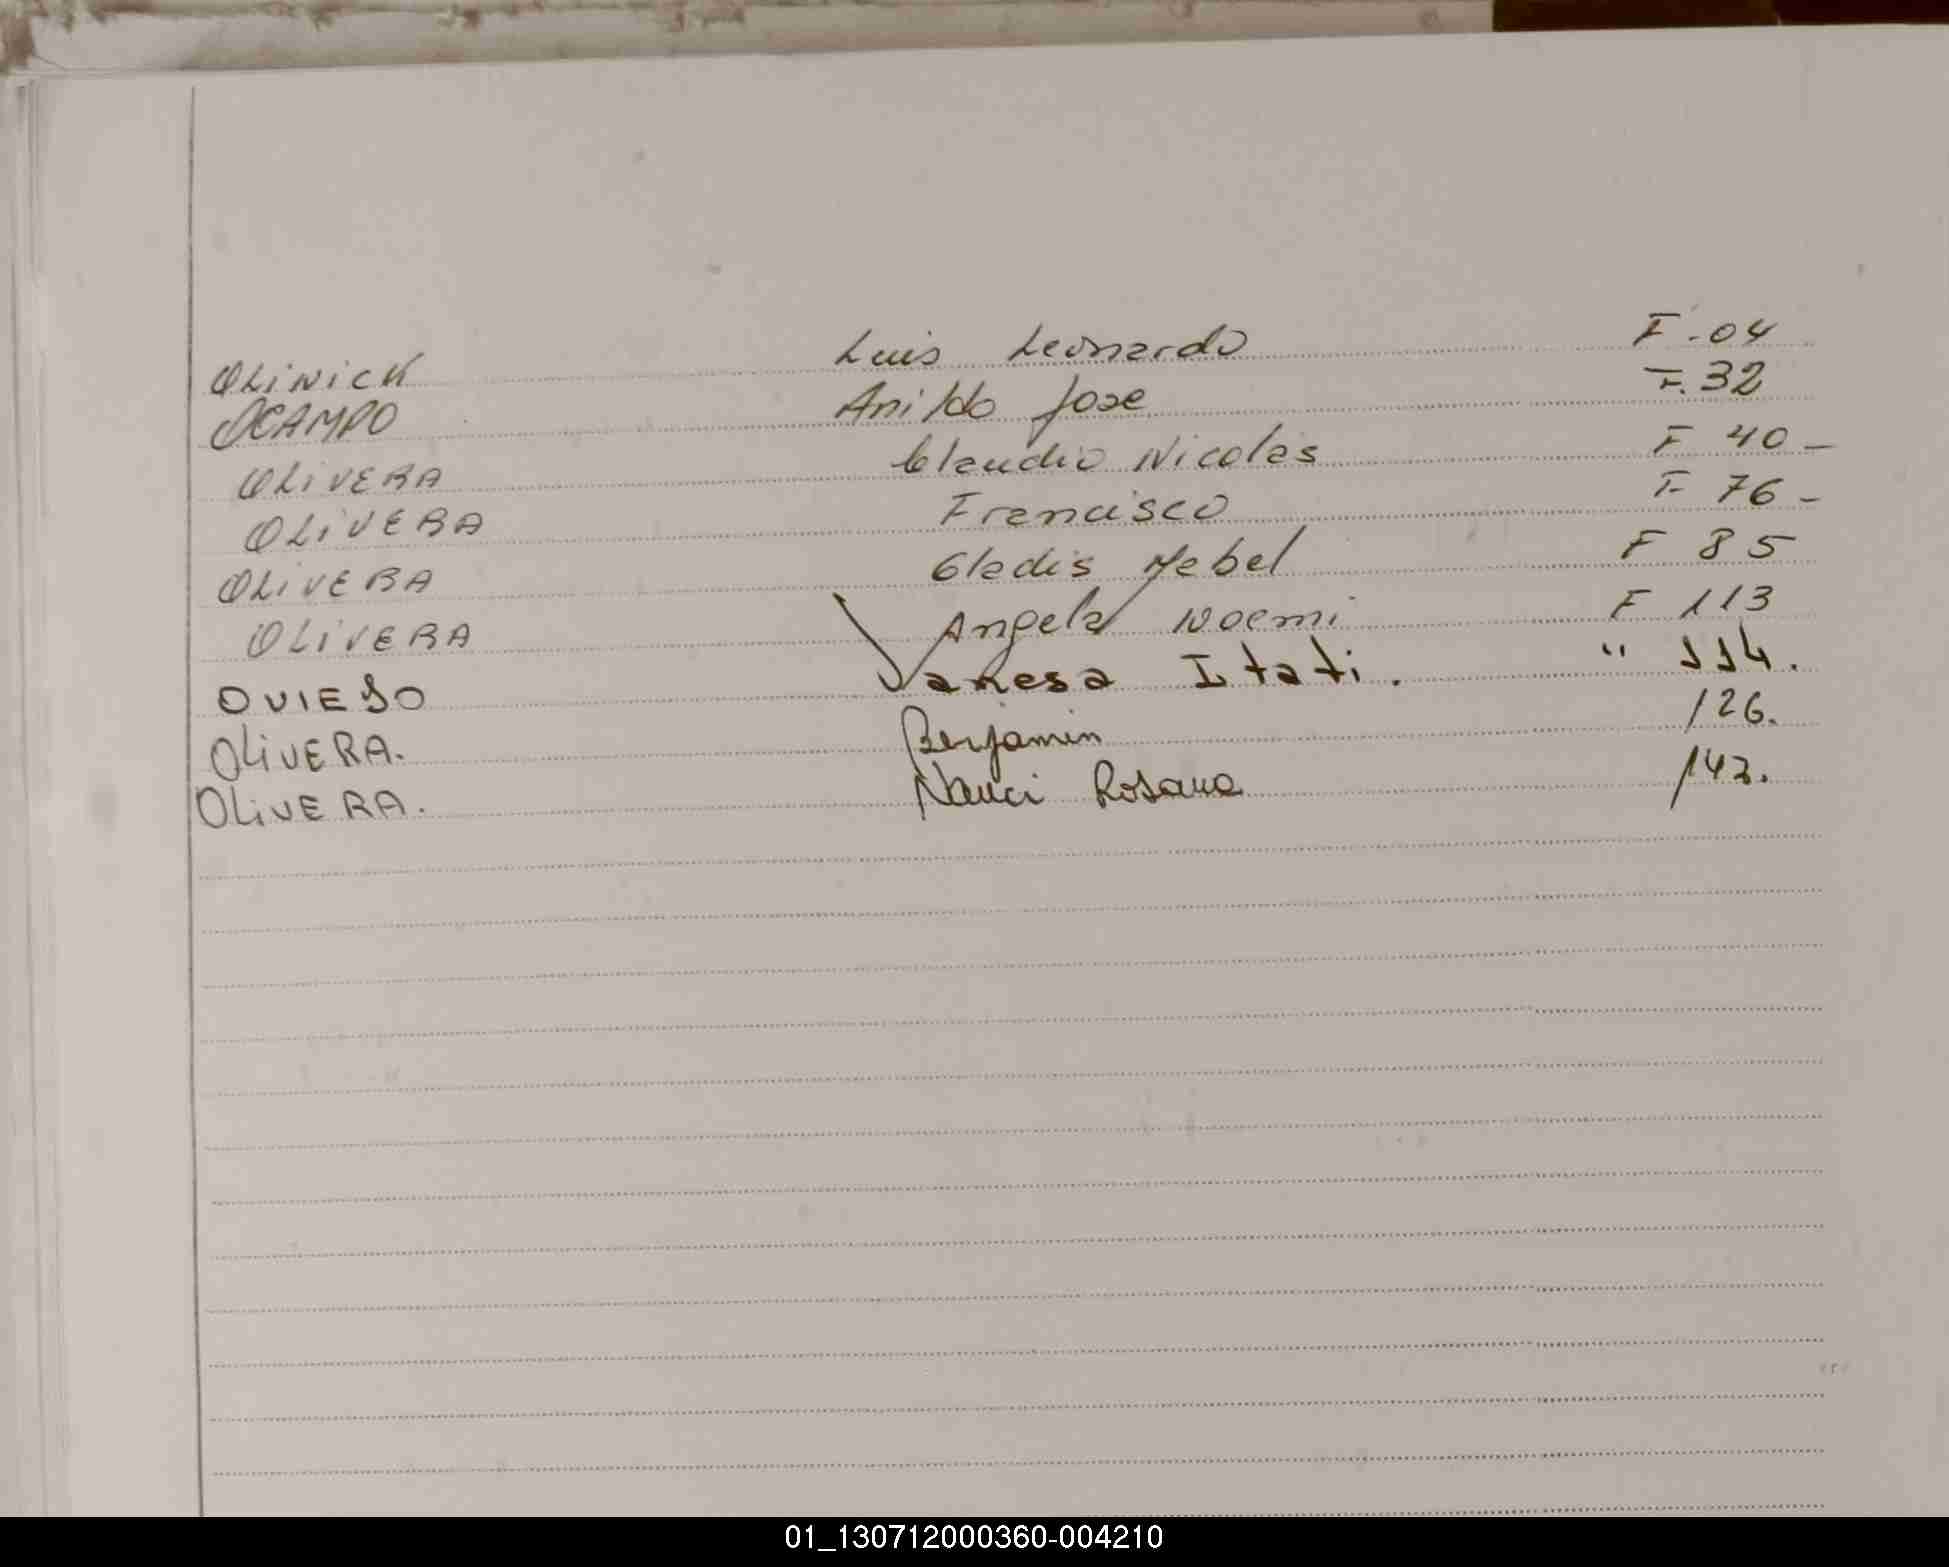 OLINICK Luis Leonardo F-04
OCAMPO Anildo Jose F.32
OLIVERA Claudio Nicolas F 40-
OLIVERA Francisco F 76-
OLIVERA Gladis Mabel F 85
OLIVERA Angela Noemi F 113
OVIEDO Vanesa Itati. " 114.
OLIVERA. Benjamin 126.
OLIVERA. Nanci Rosana 142.
01_130712000360-004210